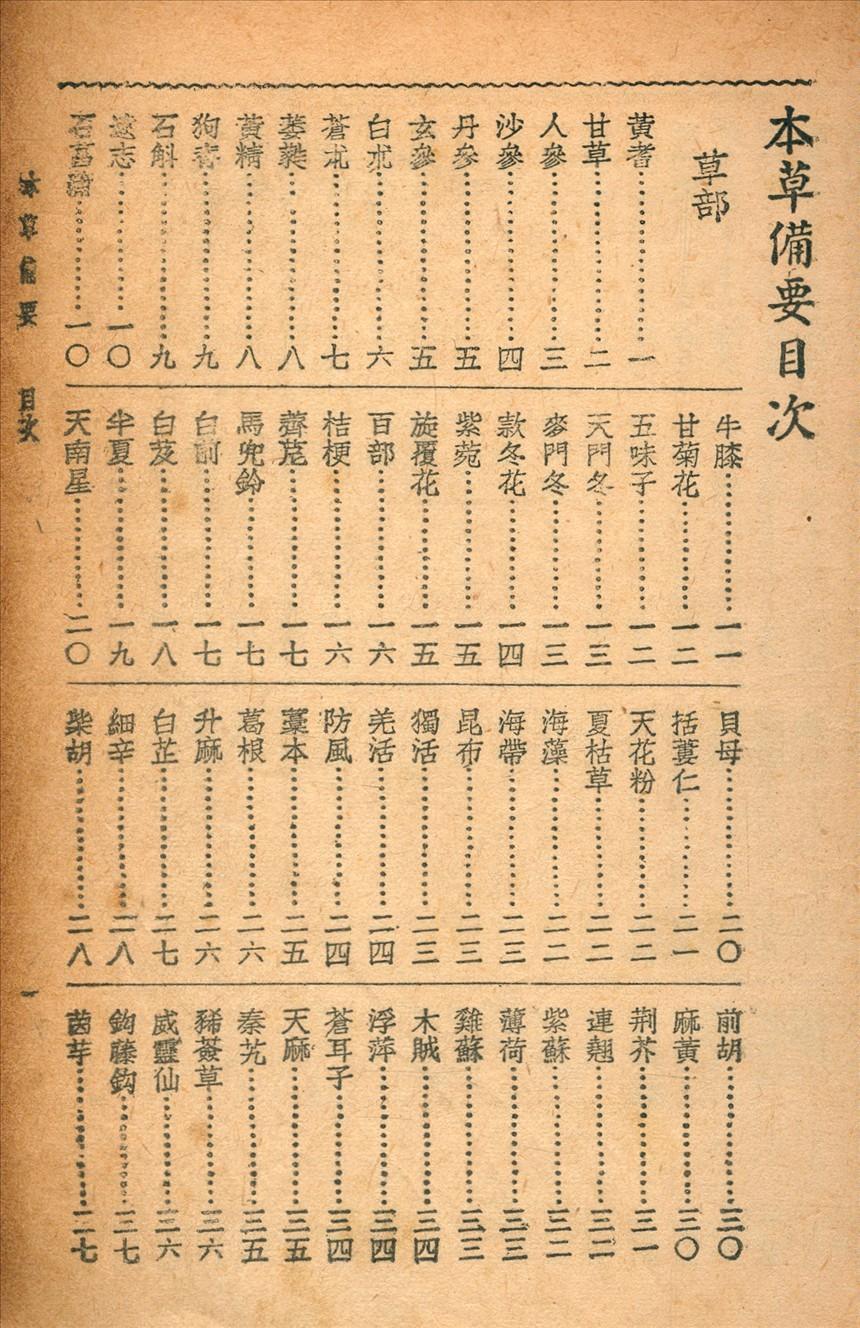 本草備要目次
草部
黃耆一
甘草二
人參三
沙參四
丹參五
玄參五
白朮六
蒼朮七
萎蕤八
黃精八
狗脊九
石斛九
遠志一〇
石菖蒲一〇
牛膝一一
甘菊花一二
五味子一二
天門冬一三
麥門冬一三
款冬花一四
紫菀一五
旋覆花一五
百部一六
桔梗一六
薺苨一七
馬兜鈴一七
白前一七
白芨一八
半夏一九
天南星二〇
貝母二〇
括蔞仁二一
天花粉二二
夏枯草二二
海藻二二
海帶二三
昆布二三
獨活二三
羌活二四
防風二四
藁本二五
葛根二六
升麻二六
白芷二七
細辛二八
柴胡二八
前胡三〇
麻黃三〇
荆芥三一
連翹三二
紫蘇三二
薄荷三三
雞蘇三三
木賊三四
浮萍三四
蒼耳子三四
天麻三五
秦艽三五
豨薟草三六
威靈仙三六
鈎藤鈎三七
茵芋三七
本草備要 目次 一